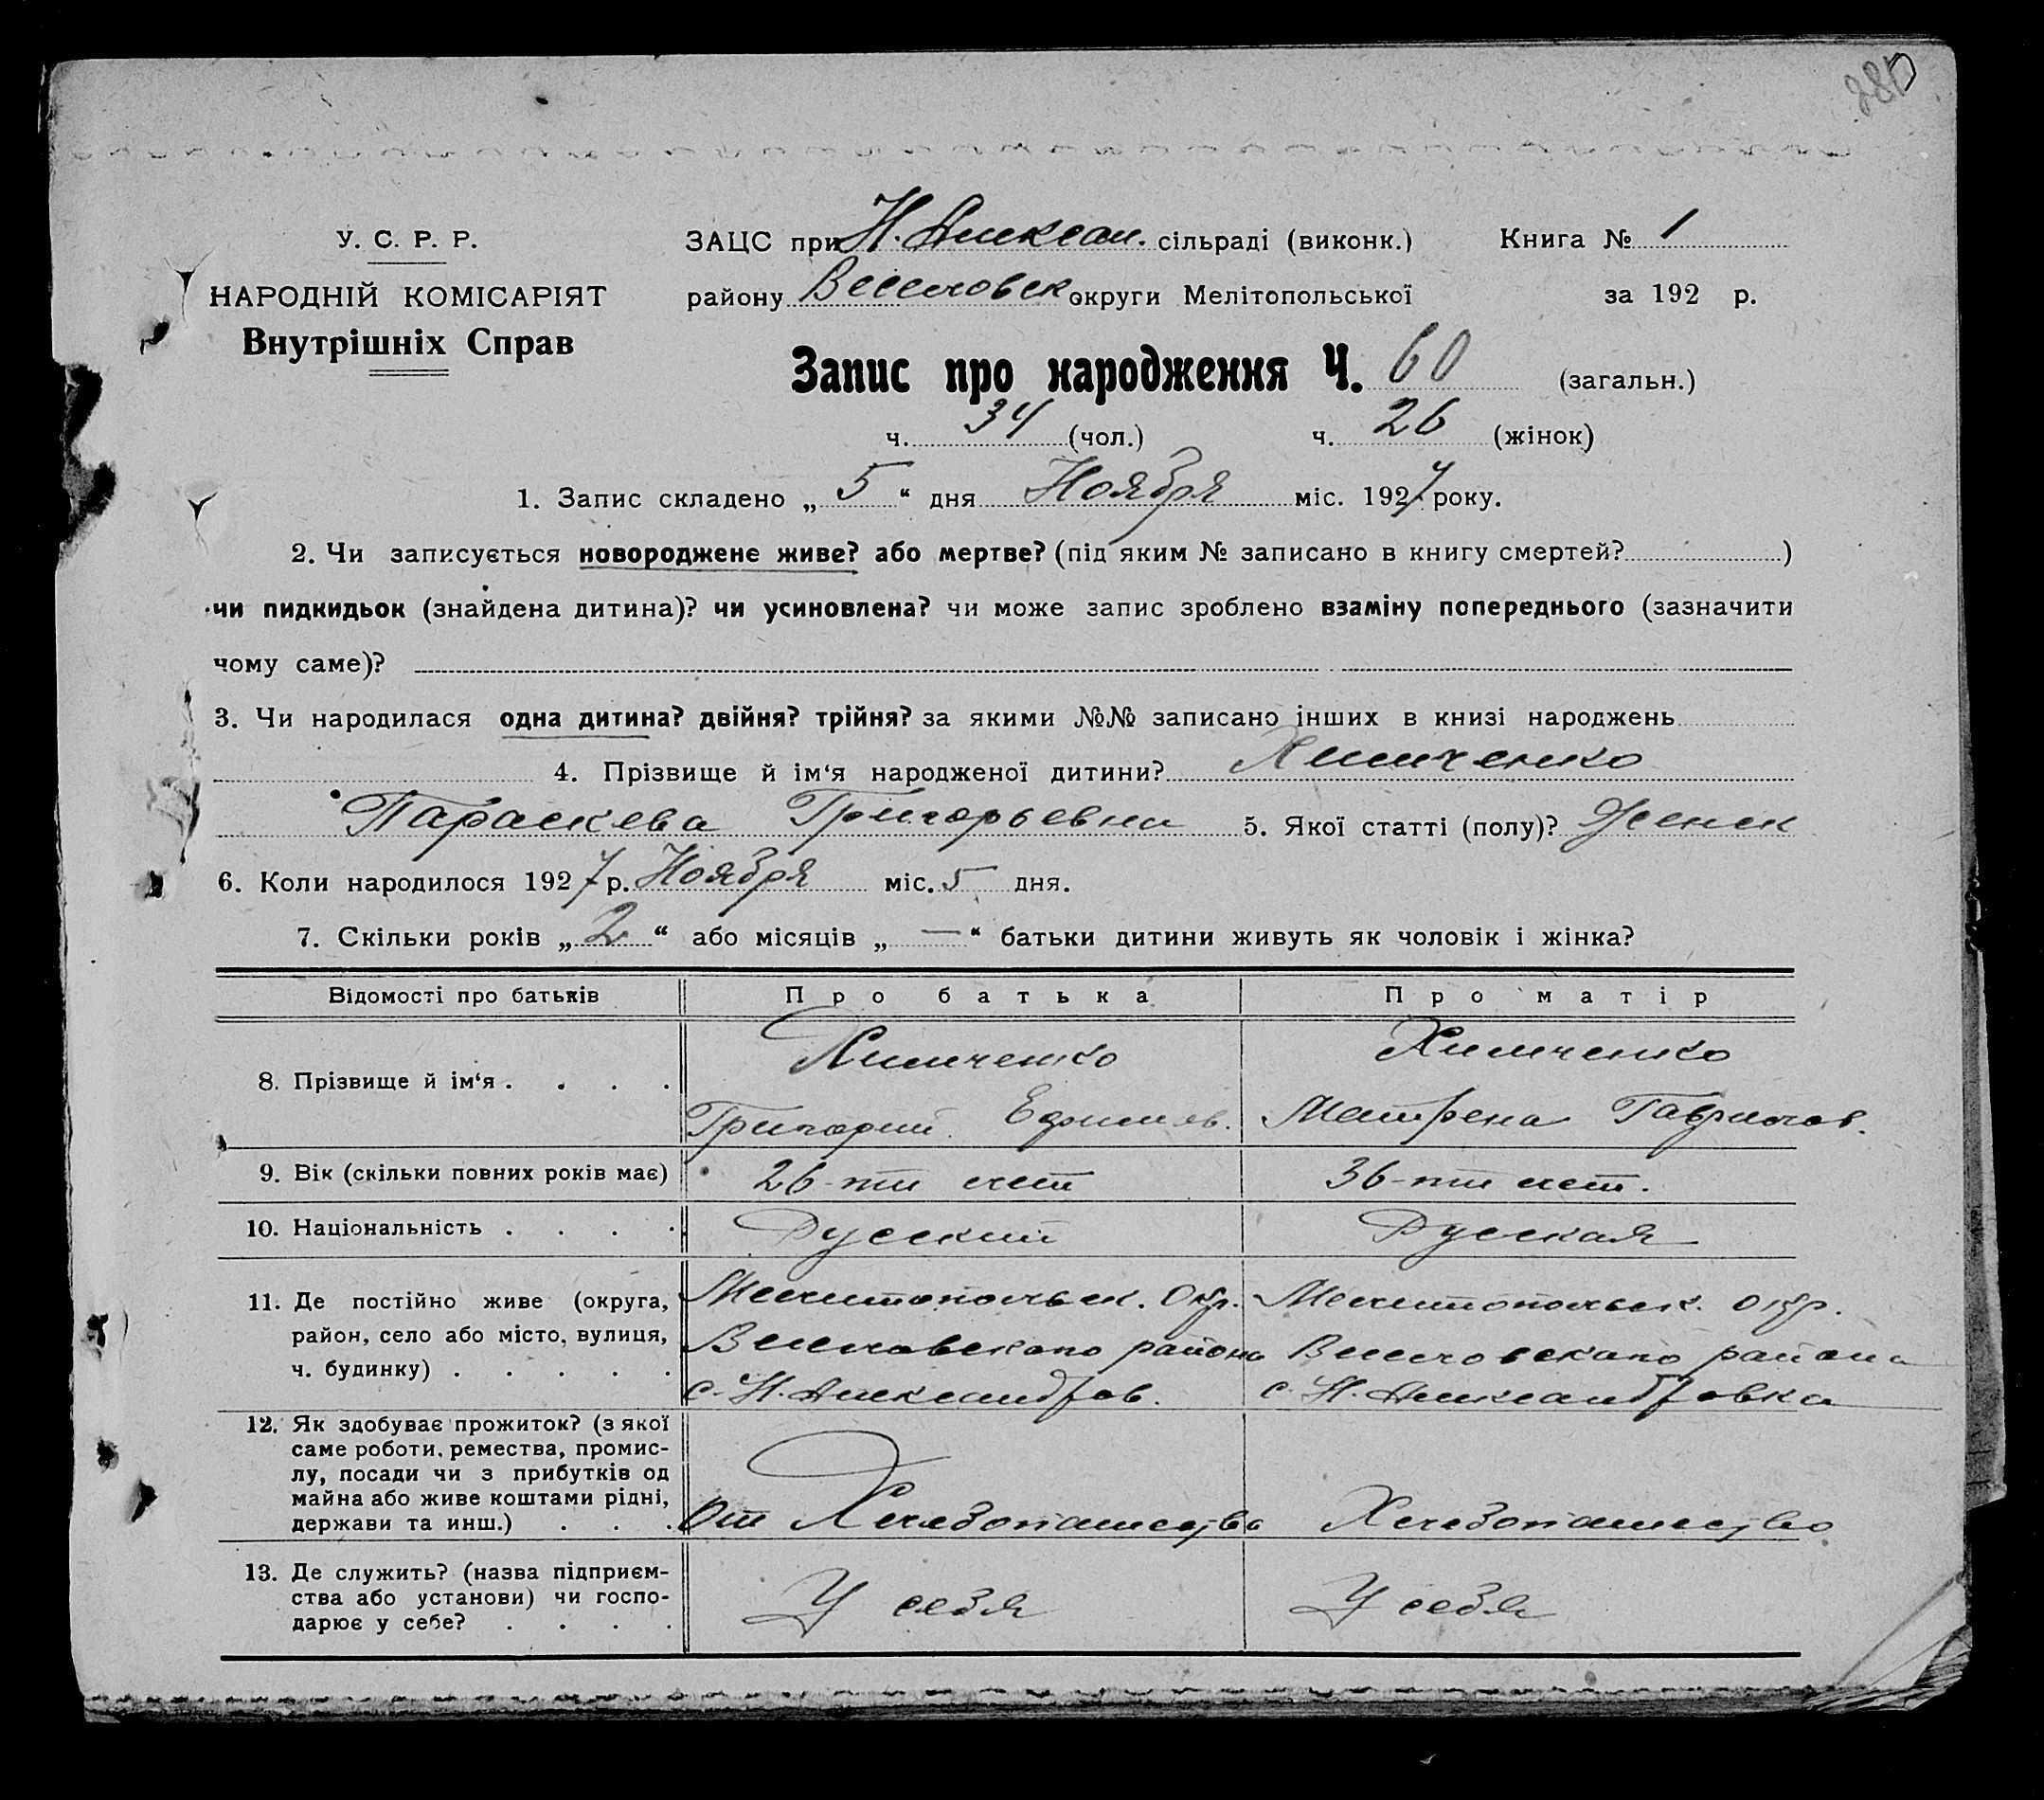 280
У. С. Р. Р.
НАРОДНІЙ КОМІСАРІЯТ
Внутрішніх Справ
ЗАЦС при Н. Алексан. сільраді (виконк.) Книга № 1
району Веселовск округи Мелітопольської за 192 р.
Запис про народження Ч. 60 (загальн.)
ч. 34 (чол.) ч. 26 (жінок)
1. Запис складено „ 5 “ дня Ноября міс. 1927 року.
2. Чи записується новороджене живе? або мертве? (під яким № записано в книгу смертей? )
чи пидкидьок (знайдена дитина)? чи усиновлена? чи може запис зроблено взаміну попереднього (зазначити
чому саме)?
3. Чи народилася одна дитина? двійня? трійня? за якими №№ записано інших в книзі народжень
4. Прізвище й ім‘я народженої дитини? Химченко
Параскева Григорьевна 5. Якої статті (полу)? Женск
6. Коли народилося 1927 р. Ноября міс. 5 дня.
7. Скільки років „ 2 “ або місяців „ — “ батьки дитини живуть як чоловік і жінка?
Відомості про батьків Про батька Про матір
8. Прізвище й ім‘я . . . . Химченко Химченко
Григорий Ефимов. Матрена Гаврилов.
9. Вік (скільки повних років має) 26-ти лет 36-ти лет.
10. Національність . . . . Русский Русская
11. Де постійно живе (округа, Мелитопольск. Окр. Мелитопольск. окр.
район, село або місто, вулиця, Веселовского района Веселовского района
ч. будинку) . . . . . с. Н. Александров. с. Н. Александровка
12. Як здобуває прожиток? (з якої
саме роботи, ремества, промис-
лу, посади чи з прибутків од
майна або живе коштами рідні,
держави та инш.) . . . От Хлебопашество Хлебопашество
13. Де служить? (назва підприєм-
ства або установи) чи госпо- У себя У себя
дарює у себе? . . . .